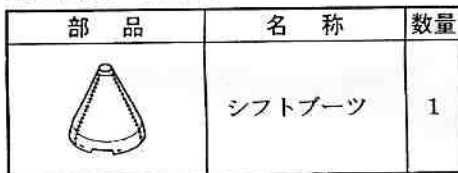 部 品 名 称 数量
シフトブーツ 1